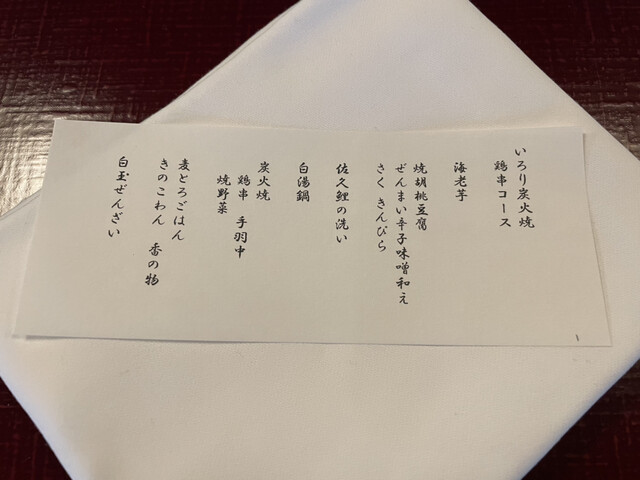 いろり炭火焼
鶏串コース
海老芋
焼胡桃豆腐
ぜんまい辛子味噌和え
さく きんぴら
佐久鯉の洗い
白湯鍋
炭火焼
鶏串 手羽中
焼野菜
麦とろごはん
きのこわん 香の物
白玉ぜんざい